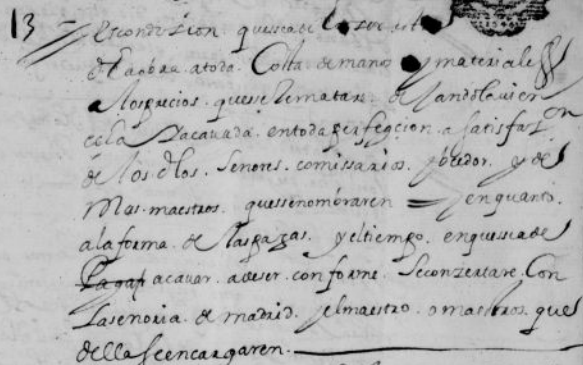 13 = Es condicion que se a de hazer esta
dha obra a toda Costa de manos y materiales
a los precios que se Rematare dejandola vien
echa Y acavada en toda perfeçcion a satisfazon
de los dhos Senores comissarios beedor y de
Mas maestros que se nombraren = y en quanto
a la forma de las pagas y el tiempo en que se a de
acavar a de ser conforme Se conzertare Con
La senoria de madrid y el maestro o maestros que
della se encargaren